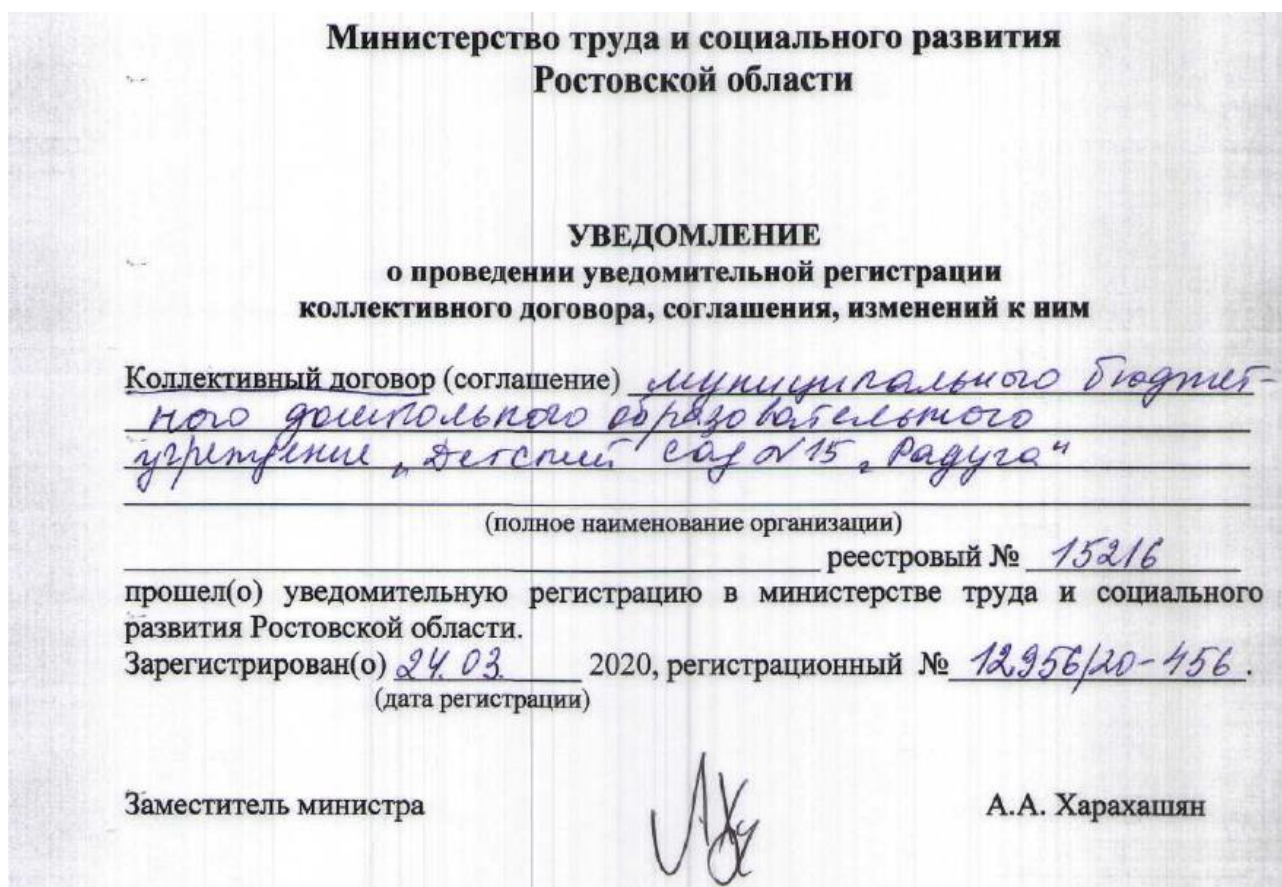 Министерство труда и социального развития
Ростовской области
УВЕДОМЛЕНИЕ
о проведении уведомительной регистрации
коллективного договора, соглашения, изменений к ним
Коллективный договор (соглашение) муниципального бюджет-
ного дошкольного образовательного
учреждение „Детский сад №15 „Радуга"
(полное наименование организации)
реестровый № 15216
прошел(о) уведомительную регистрацию в министерстве труда и социального
развития Ростовской области.
Зарегистрирован(о) 24.03. 2020, регистрационный № 12956/20-456.
(дата регистрации)
Заместитель министра А.А. Харахашян